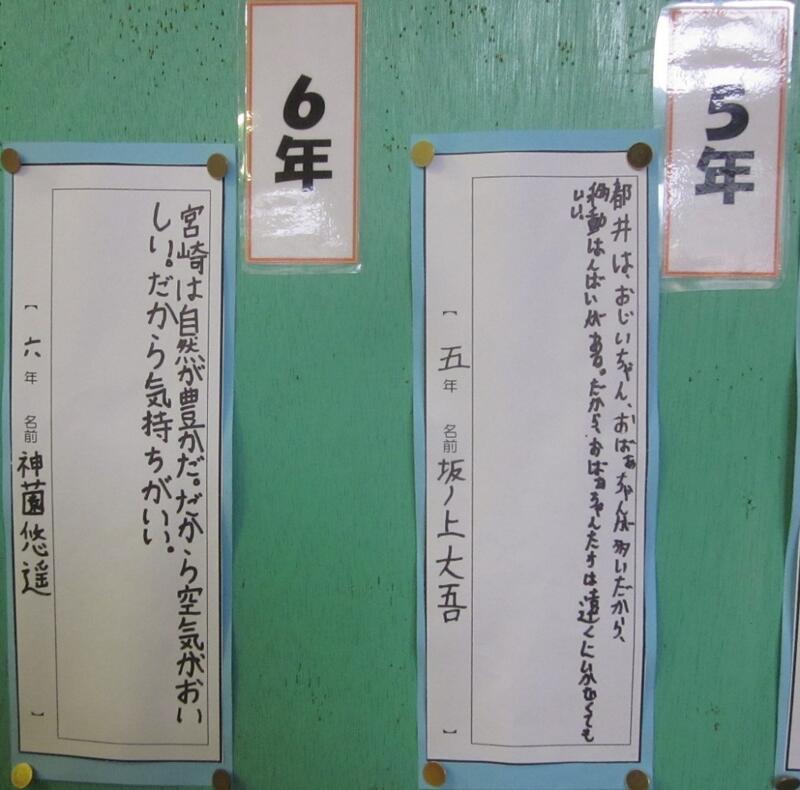 5年
都井は、おじいちゃん、おばあちゃんが多いだから、
移動はんばいがある。だから、おばあちゃんたちは遠くにいかなくても
いい。
【 五年 名前 坂ノ上大吾 】
6年
宮崎は自然が豊かだ。だから空気がおい
しい。だから気持ちがいい。
【 六年 名前 神薗悠遥 】